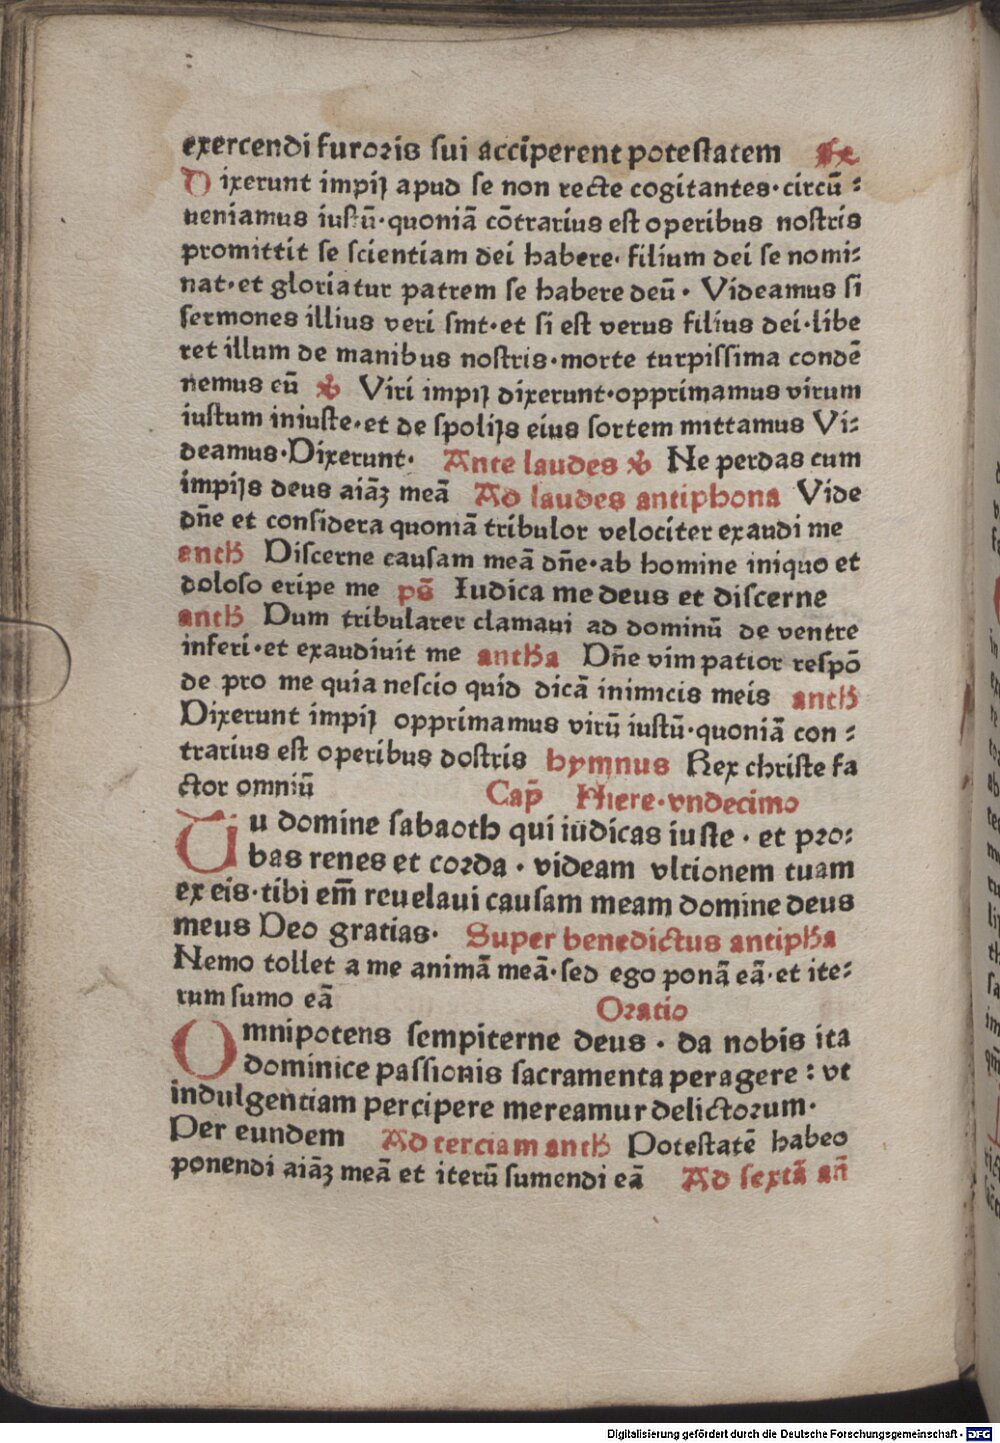 exercendi furoris sui acciperent potestatem ℞
Dixerunt impij apud se non recte cogitantes·circū:
ueniamus iustū·quoniā cōtrarius est operibus nostris
promittit se scientiam dei habere· filium dei se nomi:
nat·et gloriatur patrem se habere deū· Videamus si
sermones illius veri smt·et si est verus filius dei·libe
ret illum de manibus nostris·morte turpissima condē
nemus eū ℣ Viri impij dixerunt·opprimamus virum
iustum iniuste·et de spolijs eius sortem mittamus Vi:
deamus·Dixerunt· Ante laudes ℣ Ne perdas cum
impijs deus aiāꝫ meā Ad laudes antiphona Vide
dn̄e et considera quoniā tribulor velociter exaudi me
antħ Discerne causam meā dn̄e·ab homine iniquo et
doloso eripe me ps̄ Iudica me deus et discerne
antħ Dum tribularer clamaui ad dominū de ventre
inferi·et exaudiuit me antħa Dn̄e vim patior respō
de pro me quia nescio quid dicā inimicis meis antħ
Dixerunt impij opprimamus virū iustū·quoniā con:
trarius est operibus dostris hymnus Rex christe fa
ctor omniū Cap̄ Hiere·vndecimo
Tu domine sabaoth qui iudicas iuste· et pro:
bas renes et corda· videam vltionem tuam
ex eis·tibi em̄ reuelaui causam meam domine deus
meus Deo gratias· Super benedictus antipħa
Nemo tollet a me animā meā·sed ego ponā eā·et ite:
rum sumo eā Oratio
Omnipotens sempiterne deus· da nobis ita
dominice passionis sacramenta peragere: vt
indulgentiam percipere mereamur delictorum·
Per eundem Ad terciam antħ Potestatē habeo
ponendi aiāꝫ meā et iterū sumendi eā Ad sextā an̄
Digitalisierung gefördert durch die Deutsche Forschungsgemeinschaft - DFG